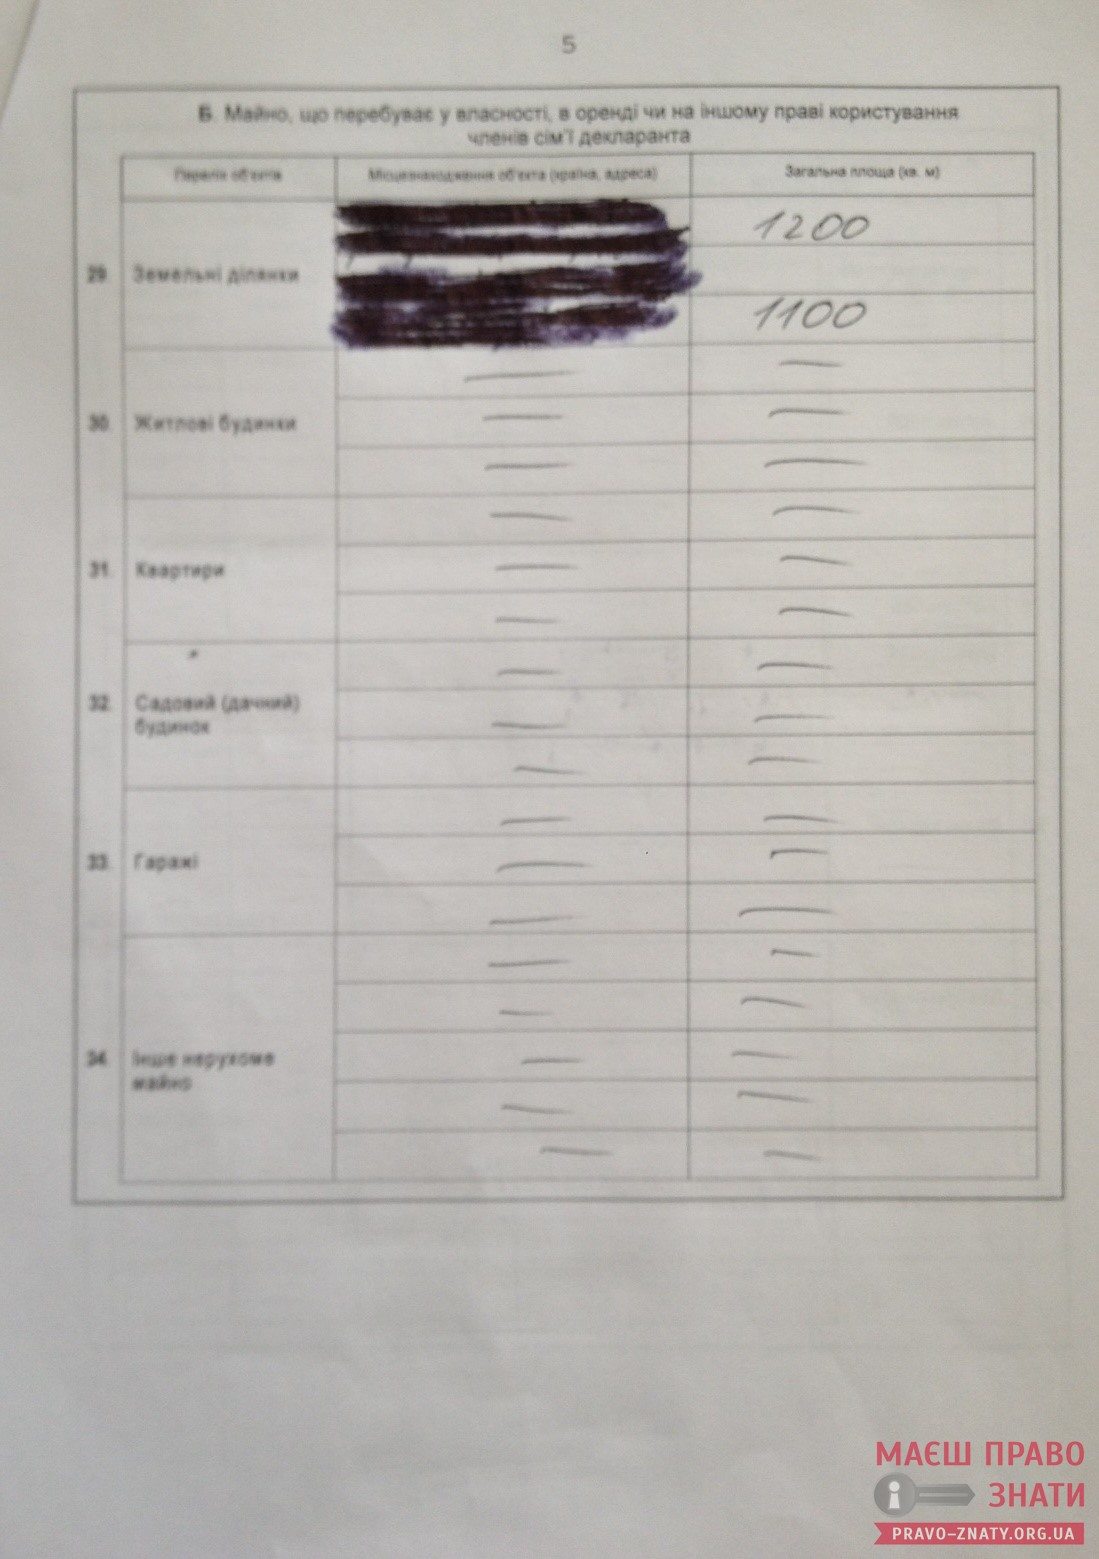 5
Б. Майно, що перебуває у власності, в оренді чи на іншому праві користування
членів сім'ї декларанта
Перелік об'єктів
Місцезнаходження об'єкта (країна, адреса)
Загальна площа (кв. м)
29. Земельні ділянки
1200
1100
30. Житлові будинки
31. Квартири
32. Садовий (дачний)
будинок
33. Гаражі
34. Інше нерухоме
майно
МАЄШ ПРАВО
ЗНАТИ
PRAVO-ZNATY.ORG.UA